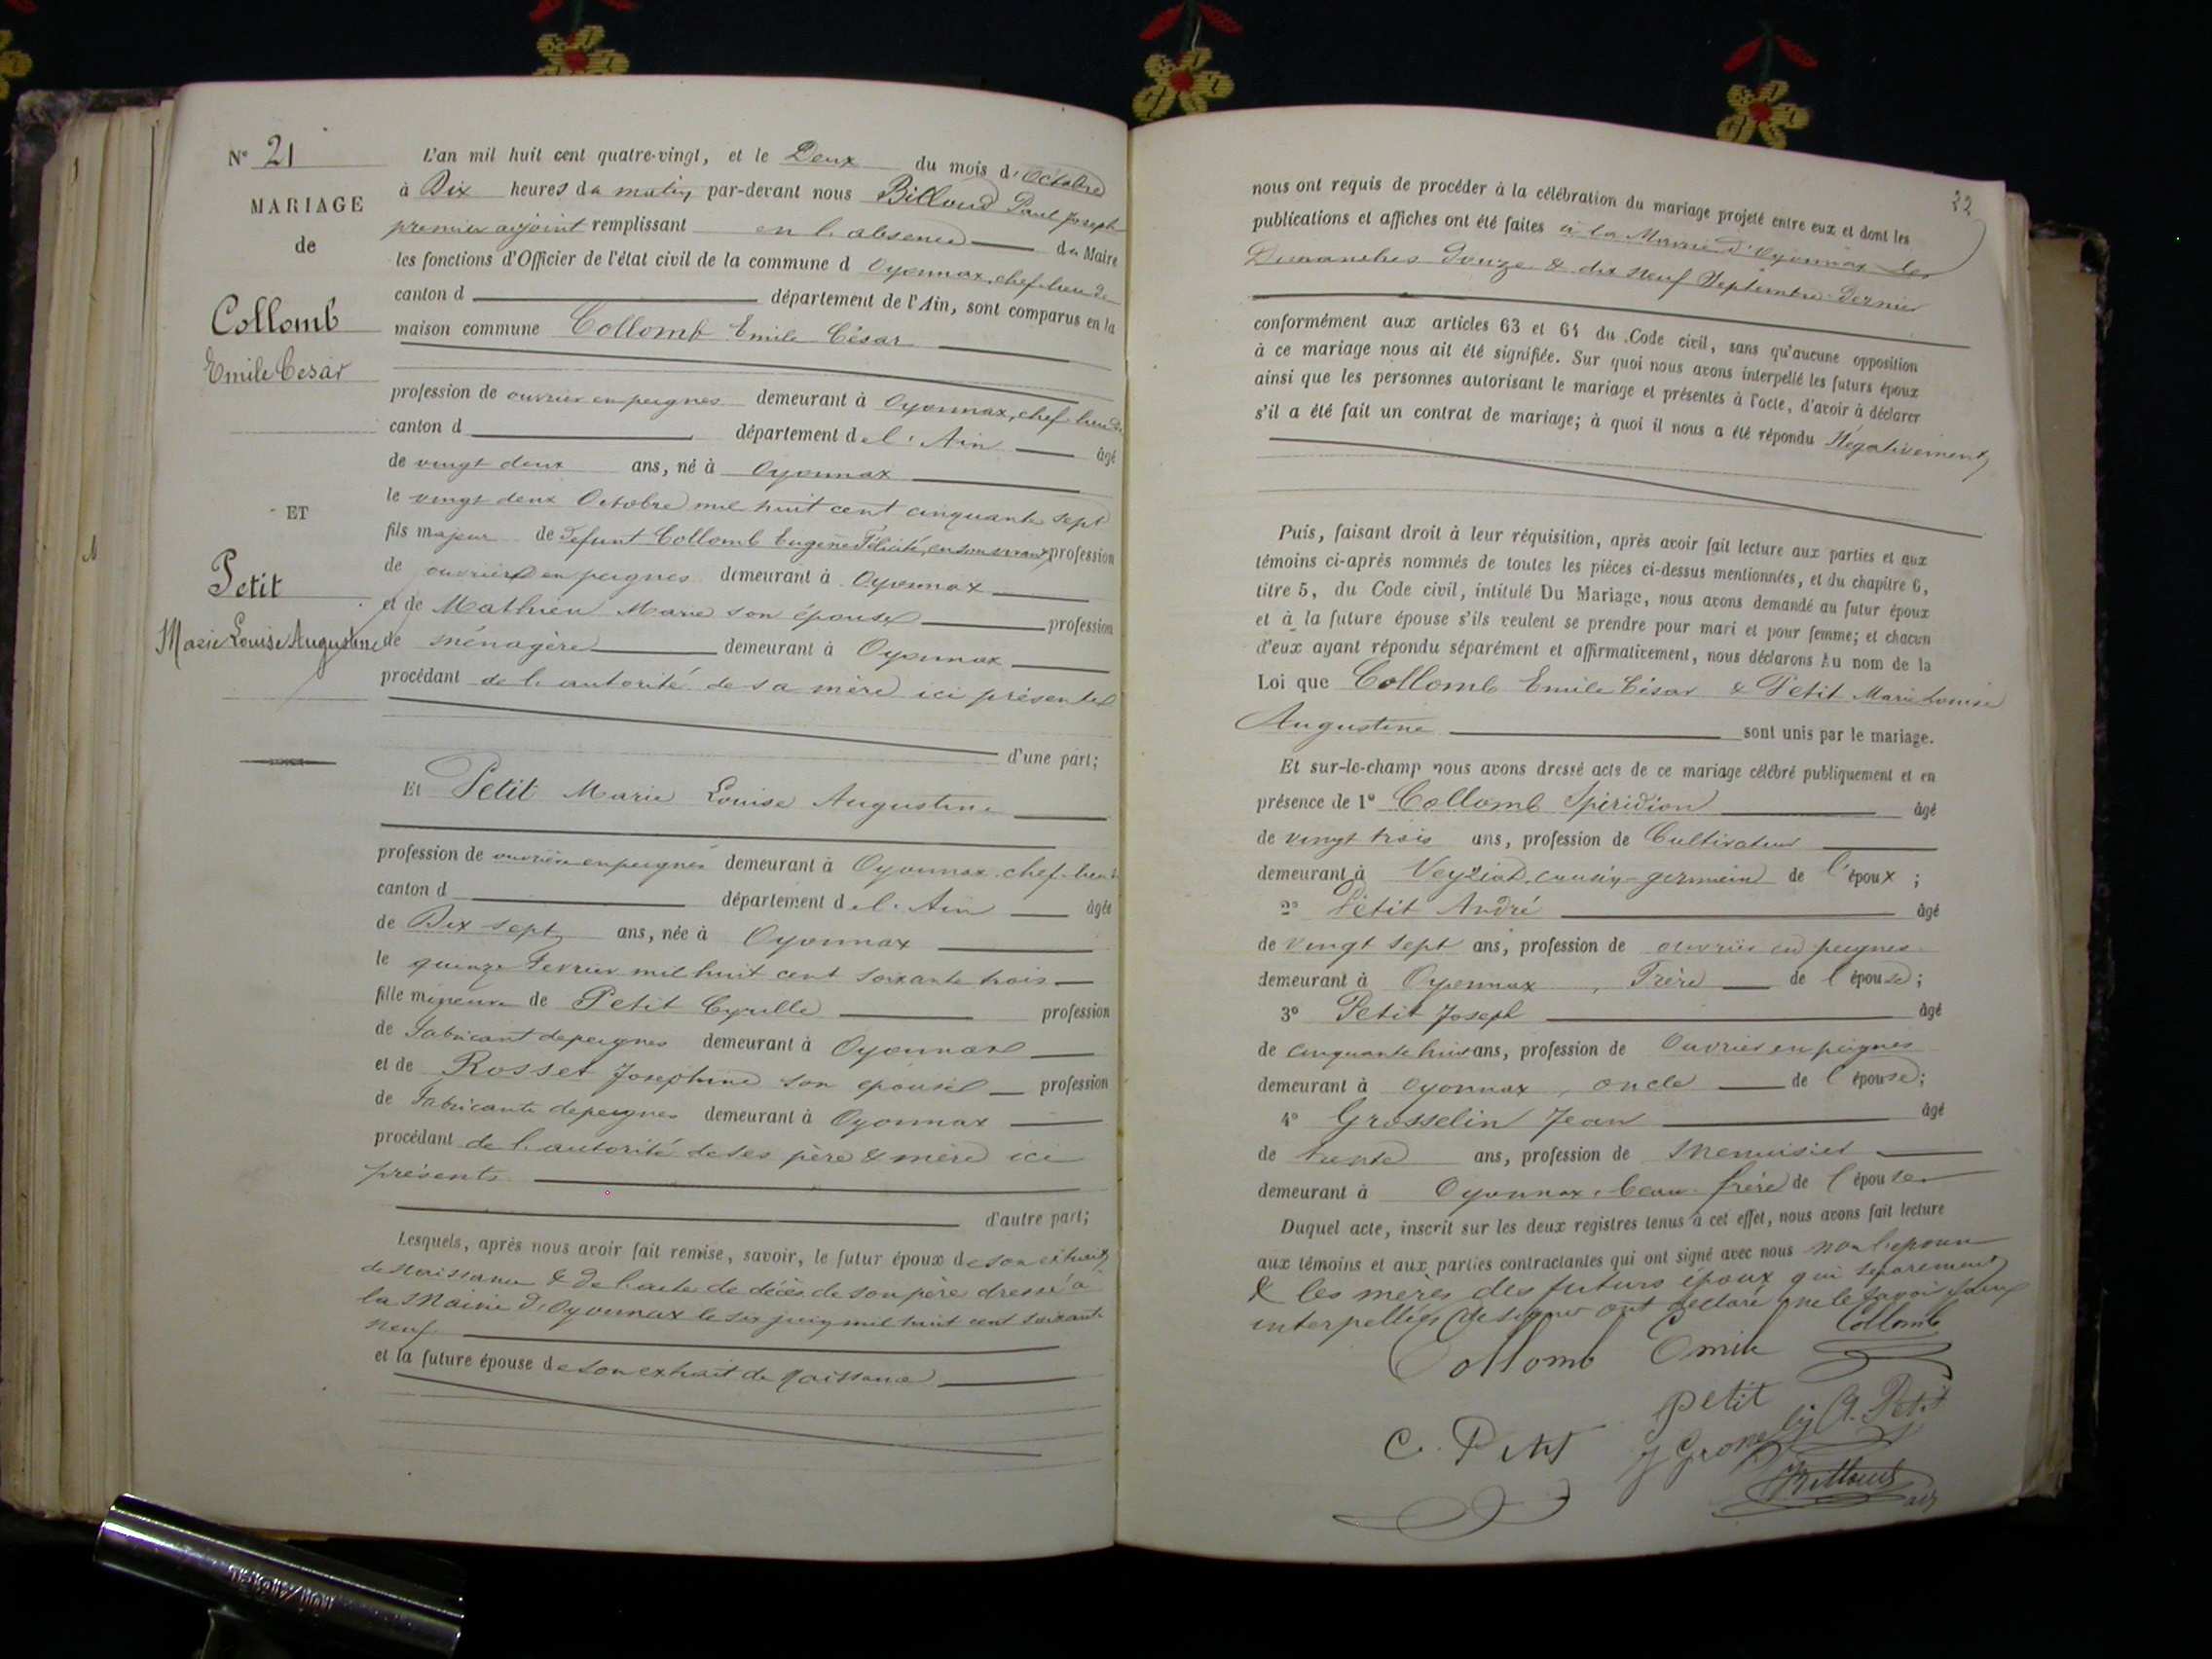 N° 21
MARIAGE
de
Collomb
Emile Cesar
ET
Petit
Marie Louise Augustine
L'an mil huit cent quatre-vingt, et le Deux du mois d'Octobre
à Dix heures du matin, par-devant nous Billoud Paul Joseph
premier adjoint remplissant en l'absence du Maire
les fonctions d'Officier de l'état civil de la commune d Oyonnax, chef-lieu de
canton d département de l'Ain, sont comparus en la
maison commune Collomb Emile César
profession de ouvrier en peignes demeurant à Oyonnax, chef-lieu de
canton d département de l'Ain âgé
de vingt deux ans, né à Oyonnax
le vingt deux Octobre mil huit cent cinquante sept
fils majeur de defunt Collomb Eugène Félicité, en son vivant profession
de ouvrier en peignes demeurant à Oyonnax
et de Mathieu Marie son épouse profession
de ménagère demeurant à Oyonnax
procédant de l'autorité de sa mère ici présente
d'une part;
Et Petit Marie Louise Augustine
profession de ouvrière en peignes demeurant à Oyonnax, chef-lieu de
canton d département de l'Ain âgée
de Dix sept ans, née à Oyonnax
le quinze Fevrier mil huit cent soixante trois
fille mineure de Petit Cyrille profession
de Fabricant de peignes demeurant à Oyonnax
et de Rosset Josephine son épouse profession
de Fabricante de peignes demeurant à Oyonnax
procédant de l'autorité de ses père & mère ici
présents
d'autre part;
Lesquels, après nous avoir fait remise, savoir, le futur époux de son extrait
de naissance & de l'acte de décès de son père dressé à
la Mairie d'Oyonnax le six juin mil huit cent soixante
neuf
et la future épouse de son extrait de naissance
22
nous ont requis de procéder à la célébration du mariage projeté entre eux et dont les
publications et affiches ont été faites à la Mairie d'Oyonnax les
Dimanches Douze & dix neuf Septembre dernier
conformément aux articles 63 et 64 du Code civil, sans qu'aucune opposition
à ce mariage nous ait été signifiée. Sur quoi nous avons interpellé les futurs époux
ainsi que les personnes autorisant le mariage et présentes à l'acte, d'avoir à déclarer
s'il a été fait un contrat de mariage; à quoi il nous a été répondu Négativement
Puis, faisant droit à leur réquisition, après avoir fait lecture aux parties et aux
témoins ci-après nommés de toutes les pièces ci-dessus mentionnées, et du chapitre 6,
titre 5, du Code civil, intitulé Du Mariage, nous avons demandé au futur époux
et à la future épouse s'ils veulent se prendre pour mari et pour femme; et chacun
d'eux ayant répondu séparément et affirmativement, nous déclarons Au nom de la
Loi que Collomb Emile César & Petit Marie Louise
Augustine sont unis par le mariage.
Et sur-le-champ nous avons dressé acte de ce mariage célébré publiquement et en
présence de 1° Collomb Spiridion âgé
de vingt trois ans, profession de Cultivateur
demeurant à Veyziat, cousin-germain de l'époux;
2° Petit André âgé
de vingt sept ans, profession de ouvrier en peignes
demeurant à Oyonnax, Frère de l'épouse;
3° Petit Joseph âgé
de cinquante huit ans, profession de Ouvrier en peignes
demeurant à Oyonnax, oncle de l'épouse;
4° Grosselin Jean âgé
de trente ans, profession de Menuisier
demeurant à Oyonnax, beau-frère de l'épouse
Duquel acte, inscrit sur les deux registres tenus à cet effet, nous avons fait lecture
aux témoins et aux parties contractantes qui ont signé avec nous non l'épouse
& les mères des futurs époux qui séparément
interpellées de signer ont déclaré ne le savoir
Collomb Emile Collomb
petit
C. Petit A. Petit
Billoud adj